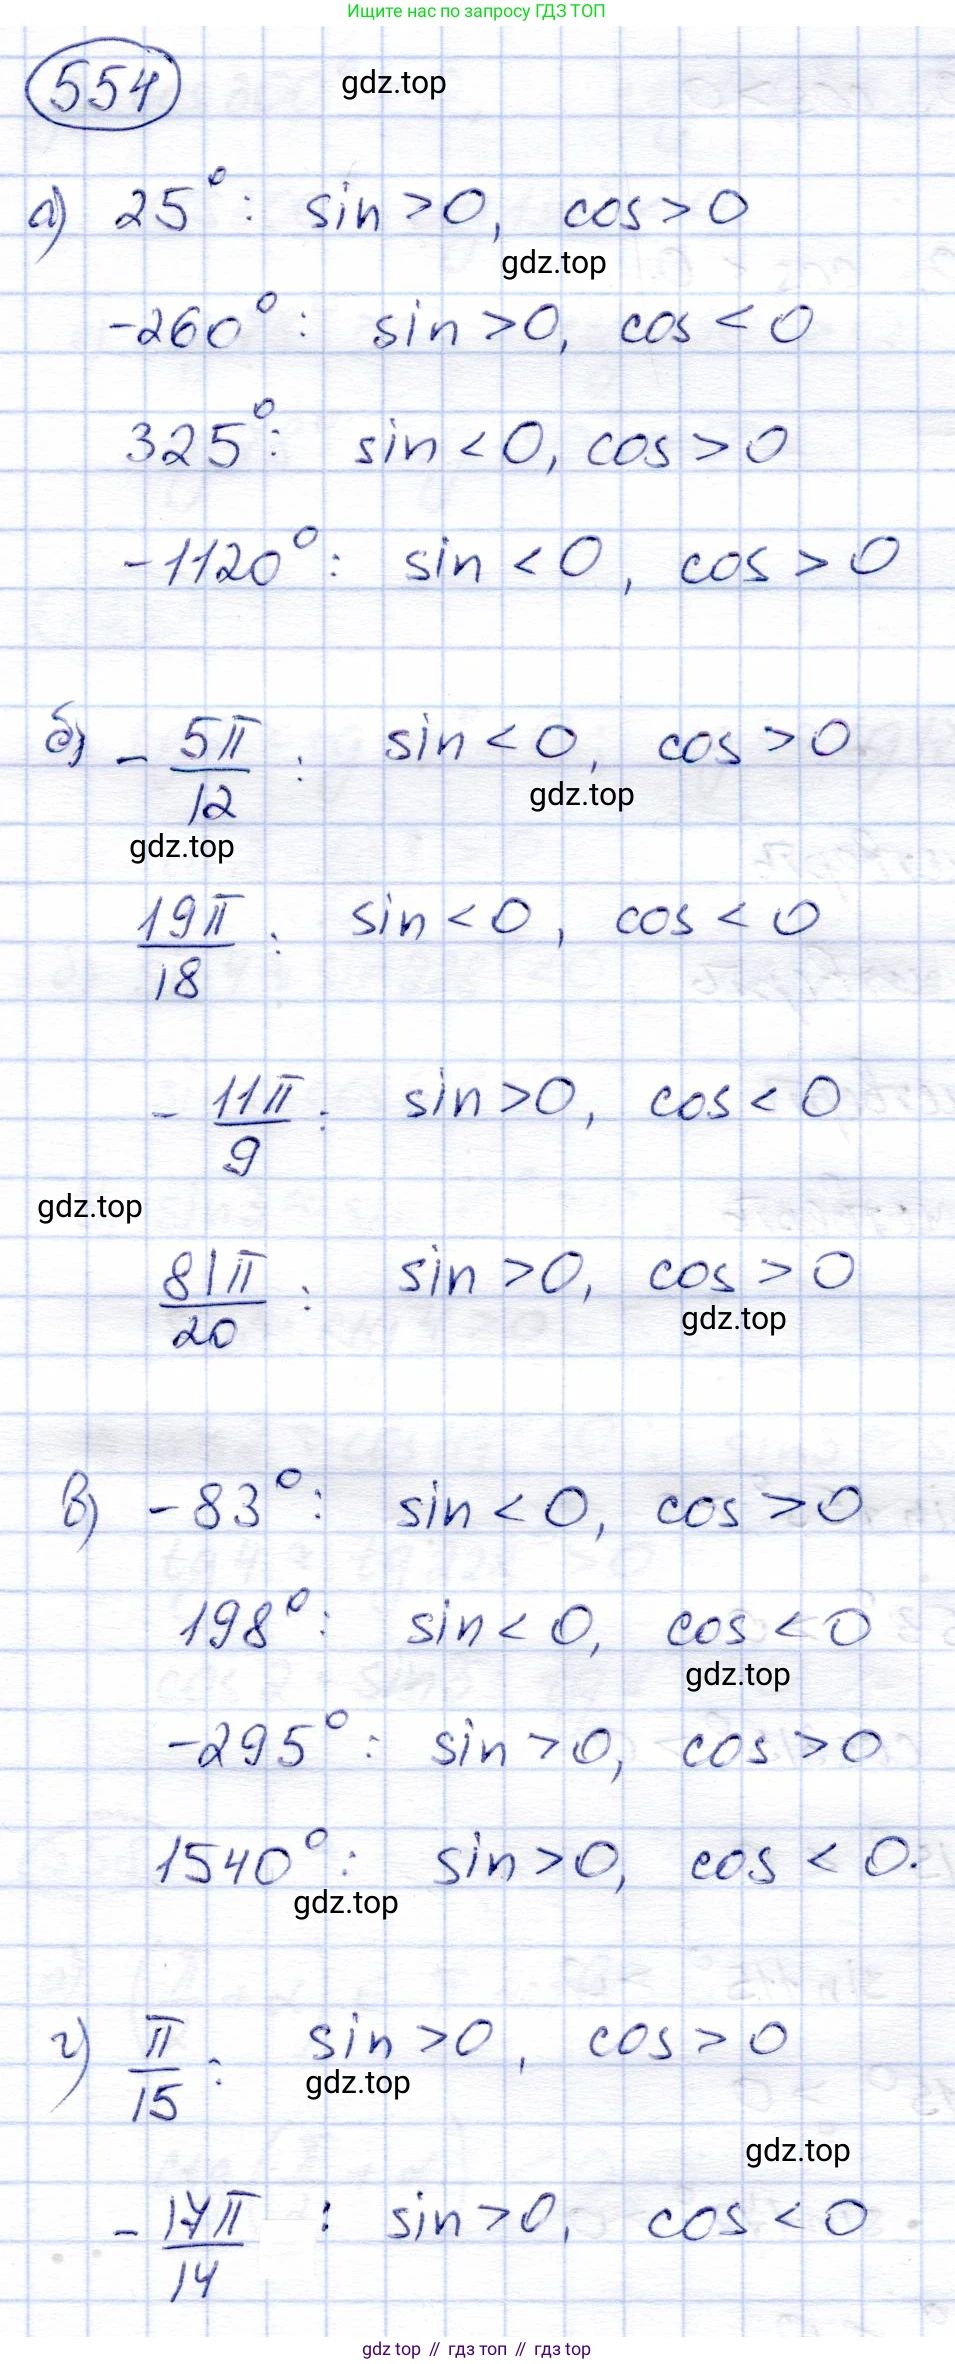 Ищите нас по запросу ГДЗ ТОП
554
gdz.top
а) 25°: sin>0, cos>0
gdz.top
-260°: sin>0, cos<0
325°: sin<0, cos>0
-1120°: sin<0, cos>0
б) -5π/12: sin<0, cos>0
gdz.top
gdz.top
19π/18: sin<0, cos<0
-11π/9: sin>0, cos<0
gdz.top
81π/20: sin>0, cos>0
gdz.top
в) -83°: sin<0, cos>0
198°: sin<0, cos<0
gdz.top
-295°: sin>0, cos>0
1540°: sin>0, cos<0.
gdz.top
г) π/15: sin>0, cos>0
gdz.top
gdz.top
-17π/14: sin>0, cos<0
gdz top // гдз топ // gdz top